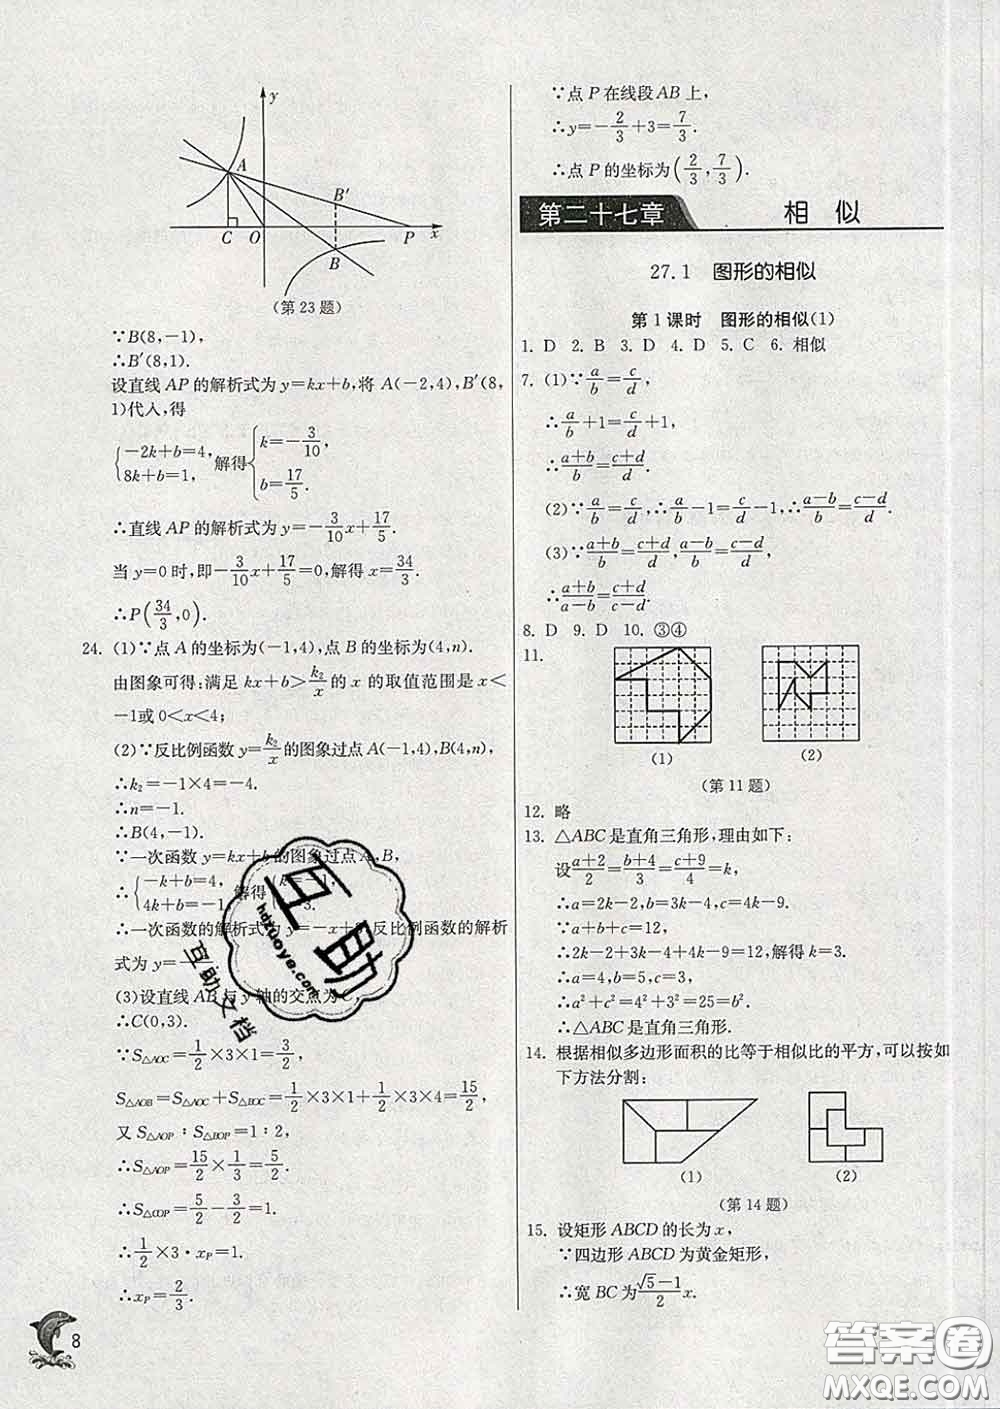 y
A
B′
C
O
P
x
B
(第23题)
∵B(8,−1),
∴B′(8,1).
设直线AP的解析式为y=kx+b,将A(−2,4),B′(8,
1)代入,得
{−2k+b=4, 8k+b=1, 解得{k=−3/10, b=17/5.
∴直线AP的解析式为y=−3/10x+17/5.
当y=0时,即−3/10x+17/5=0,解得x=34/3.
∴P(34/3,0).
24. (1)∵点A的坐标为(−1,4),点B的坐标为(4,n).
由图象可得:满足kx+b>k₂/x的x的取值范围是x<
−1或0<x<4;
(2)∵反比例函数y=k₂/x的图象过点A(−1,4),B(4,n),
∴k₂=−1×4=−4.
∴n=−1.
∴B(4,−1).
∵一次函数y=kx+b的图象过点A,B,
∴{−k+b=4, 4k+b=−1, 解得{k=−1,
∴一次函数的解析式 y=−x+ 反比例函数的解析
式为y=−
(3)设直线AB与y轴的交点为C,
∴C(0,3).
∵S△AOC=1/2×3×1=3/2,
S△AOB=S△AOC+S△BOC=1/2×3×1+1/2×3×4=15/2,
又S△AOP∶S△BOP=1∶2,
∴S△AOP=15/2×1/3=5/2.
∴S△COP=5/2−3/2=1.
∴1/2×3·xP=1.
∴xP=2/3.
8
∵点P在线段AB上,
∴y=−2/3+3=7/3.
∴点P的坐标为(2/3,7/3).
第二十七章 相 似
27.1 图形的相似
第1课时 图形的相似(1)
1. D 2. B 3. D 4. D 5. C 6. 相似
7. (1)∵a/b=c/d,
∴a/b+1=c/d+1,
∴(a+b)/b=(c+d)/d.
(2)∵a/b=c/d,∴a/b−1=c/d−1,∴(a−b)/b=(c−d)/d.
(3)∵(a+b)/b=(c+d)/d,(a−b)/b=(c−d)/d,
∴(a+b)/(a−b)=(c+d)/(c−d).
8. D 9. D 10. ③④
11.
(1) (2)
(第11题)
12. 略
13. △ABC是直角三角形,理由如下:
设(a+2)/2=(b+4)/3=(c+9)/4=k,
∴a=2k−2,b=3k−4,c=4k−9.
∵a+b+c=12,
∴2k−2+3k−4+4k−9=12,解得k=3.
∴a=4,b=5,c=3.
∴a²+c²=4²+3²=25=b².
∴△ABC是直角三角形.
14. 根据相似多边形面积的比等于相似比的平方,可以按如
下方法分割:
(1) (2)
(第14题)
15. 设矩形ABCD的长为x,
∵四边形ABCD为黄金矩形,
∴宽BC为(√5−1)/2x.
互助
hdzuoye.com
互助文档
答案圈
MXQE.COM